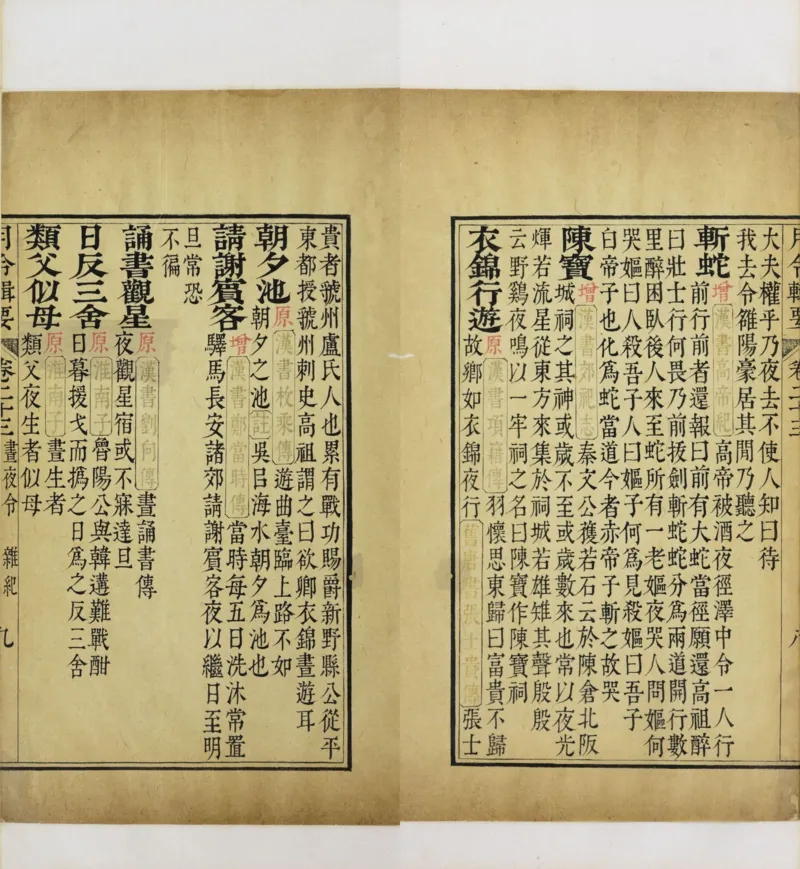 月令輯要 卷二十三
大夫權乎乃夜去不使人知曰待
我去令雒陽豪居其間乃聽之
斬蛇 增 漢書高帝紀 高帝被酒夜徑澤中令一人行
前行前者還報曰前有大蛇當徑願還高祖醉
曰壯士行何畏乃前拔劍斬蛇蛇分爲兩道開行數
里醉困臥後人來至蛇所有一老嫗夜哭人問嫗何
哭嫗曰人殺吾子人曰嫗子何爲見殺嫗曰吾子
白帝子也化爲蛇當道今者赤帝子斬之故哭
陳寶 增 漢書郊祀志 秦文公獲若石云於陳倉北阪
城祠之其神或歲不至或歲數來也常以夜光
煇若流星從東方來集於祠城若雄雉其聲殷殷
云野鷄夜鳴以一牢祠之名曰陳寶作陳寶祠
衣錦行遊 原 漢書項籍傳 羽懷思東歸曰富貴不歸
故鄉如衣錦夜行 舊唐書張士貴傳 張士
貴者虢州盧氏人也累有戰功賜爵新野縣公從平
東都授虢州刺史高祖謂之曰欲卿衣錦晝遊耳
朝夕池 原 漢書枚乘傳 遊曲臺臨上路不如
朝夕之池 註 吳呂海水朝夕爲池也
請謝賓客 增 漢書鄭當時傳 當時每五日洗沐常置
驛馬長安諸郊請謝賓客夜以繼日至明
旦常恐
不徧
誦書觀星 原 漢書劉向傳 晝誦書傳
夜觀星宿或不寐達旦
日反三舍 原 淮南子 魯陽公與韓遘難戰酣
日暮援戈而撝之日爲之反三舍
類父似母 原 淮南子 晝生者
類父夜生者似母
月令輯要 卷二十三 晝夜令 雜紀 九